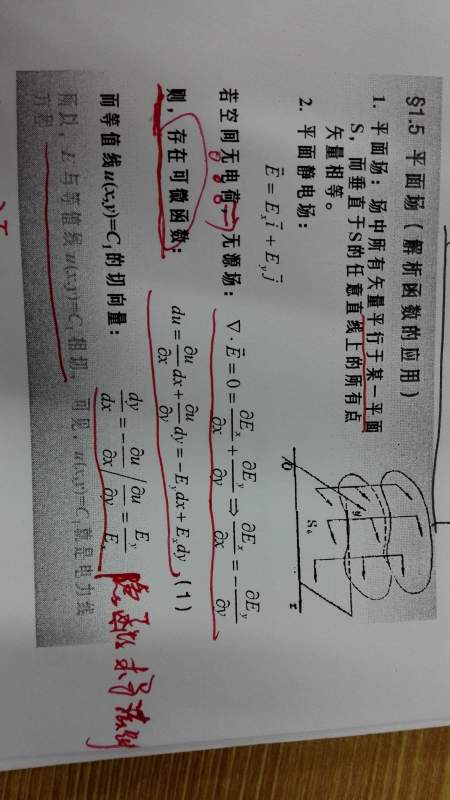 §1.5 平面场(解析函数的应用)
1. 平面场:场中所有矢量平行于某一平面
S,而垂直于S的任意直线上的所有点
矢量相等。
2. 平面静电场:
S₀
x
$\vec{E} = E_x\vec{i} + E_y\vec{j}$
若空间无电荷,无源场: $\nabla \cdot \vec{E} = 0 = \frac{\partial E_x}{\partial x} + \frac{\partial E_y}{\partial y} \Rightarrow \frac{\partial E_x}{\partial x} = -\frac{\partial E_y}{\partial y}$
则,存在可微函数: $du = \frac{\partial u}{\partial x}dx + \frac{\partial u}{\partial y}dy = -E_y dx + E_x dy$ (1)
而等值线u(x,y)=C₁的切向量: $\frac{dy}{dx} = -\frac{\partial u}{\partial x} / \frac{\partial u}{\partial y} = \frac{E_y}{E_x}$
隐函数求导法则
所以,E与等值线u(x,y)=C₁相切,可见,u(x,y)=C₁就是电力线
方程